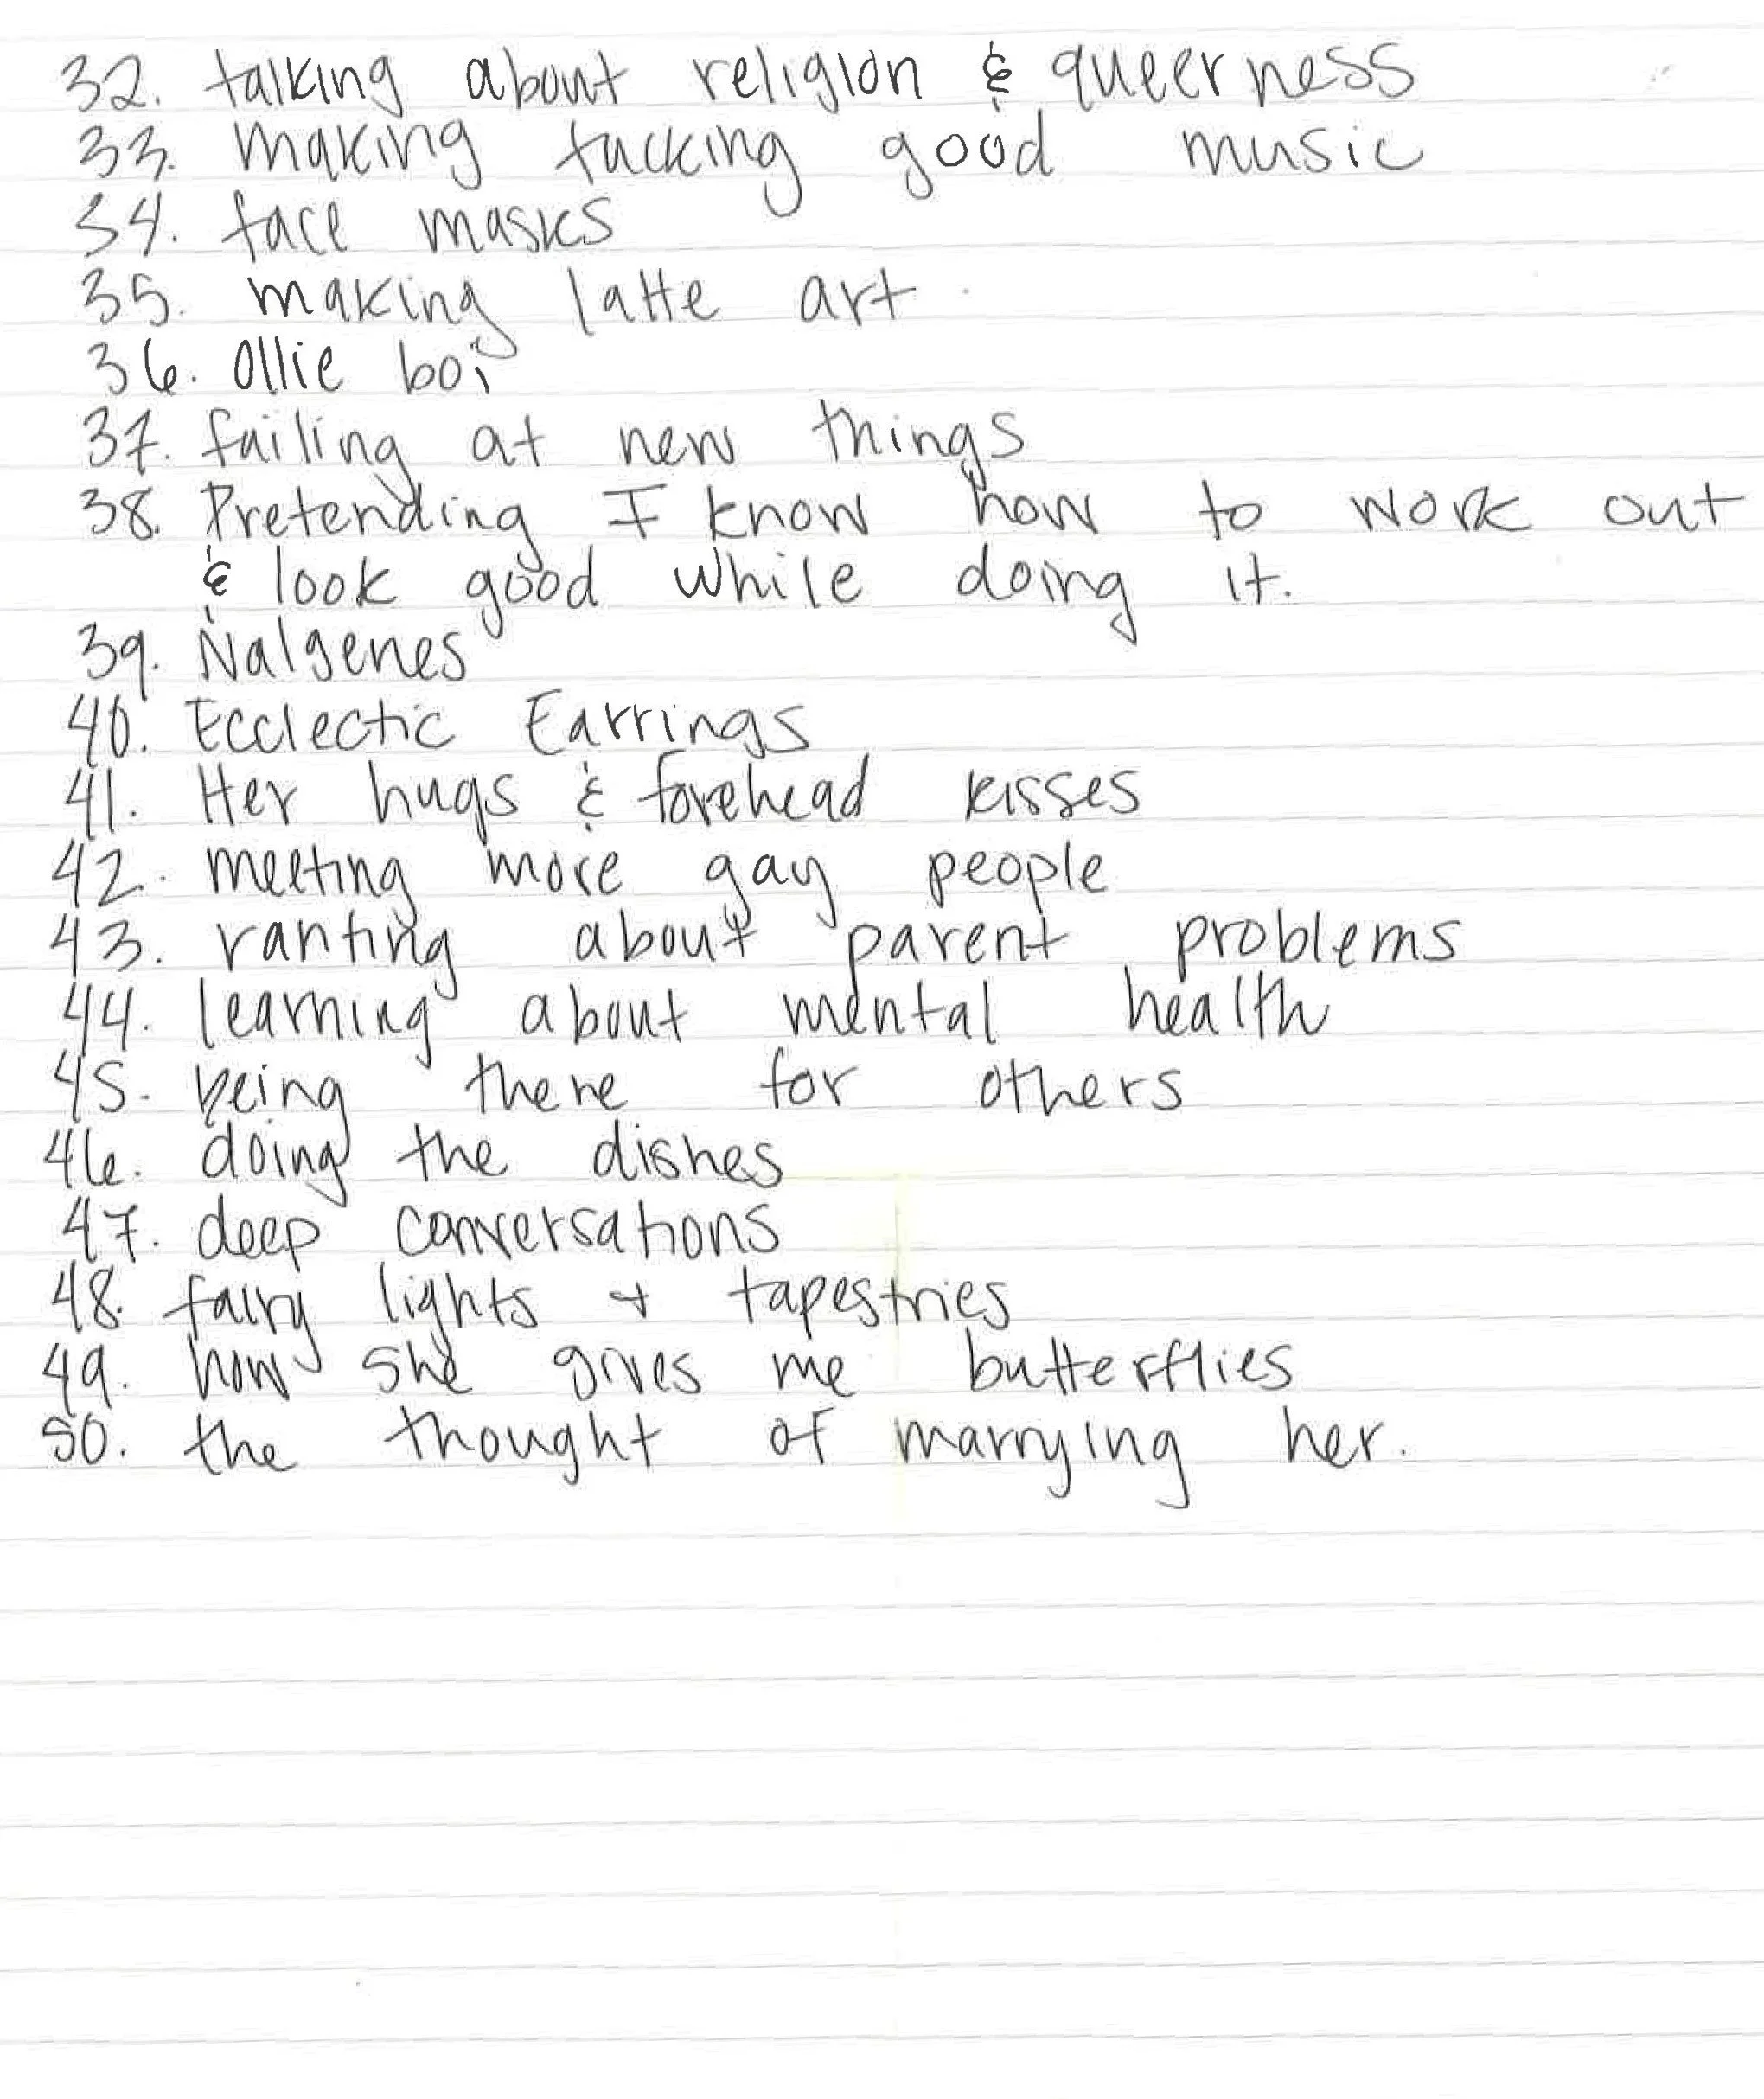 32. talking about religion & queerness
33. making fucking good music
34. face masks
35. making latte art
36. Ollie boi
37. failing at new things
38. Pretending I know how to work out
& look good while doing it.
39. Nalgenes
40. Ecclectic Earrings
41. Her hugs & forehead kisses
42. meeting more gay people
43. ranting about parent problems
44. learning about mental health
45. being there for others
46. doing the dishes
47. deep conversations
48. fairy lights + tapestries
49. how she gives me butterflies
50. the thought of marrying her.